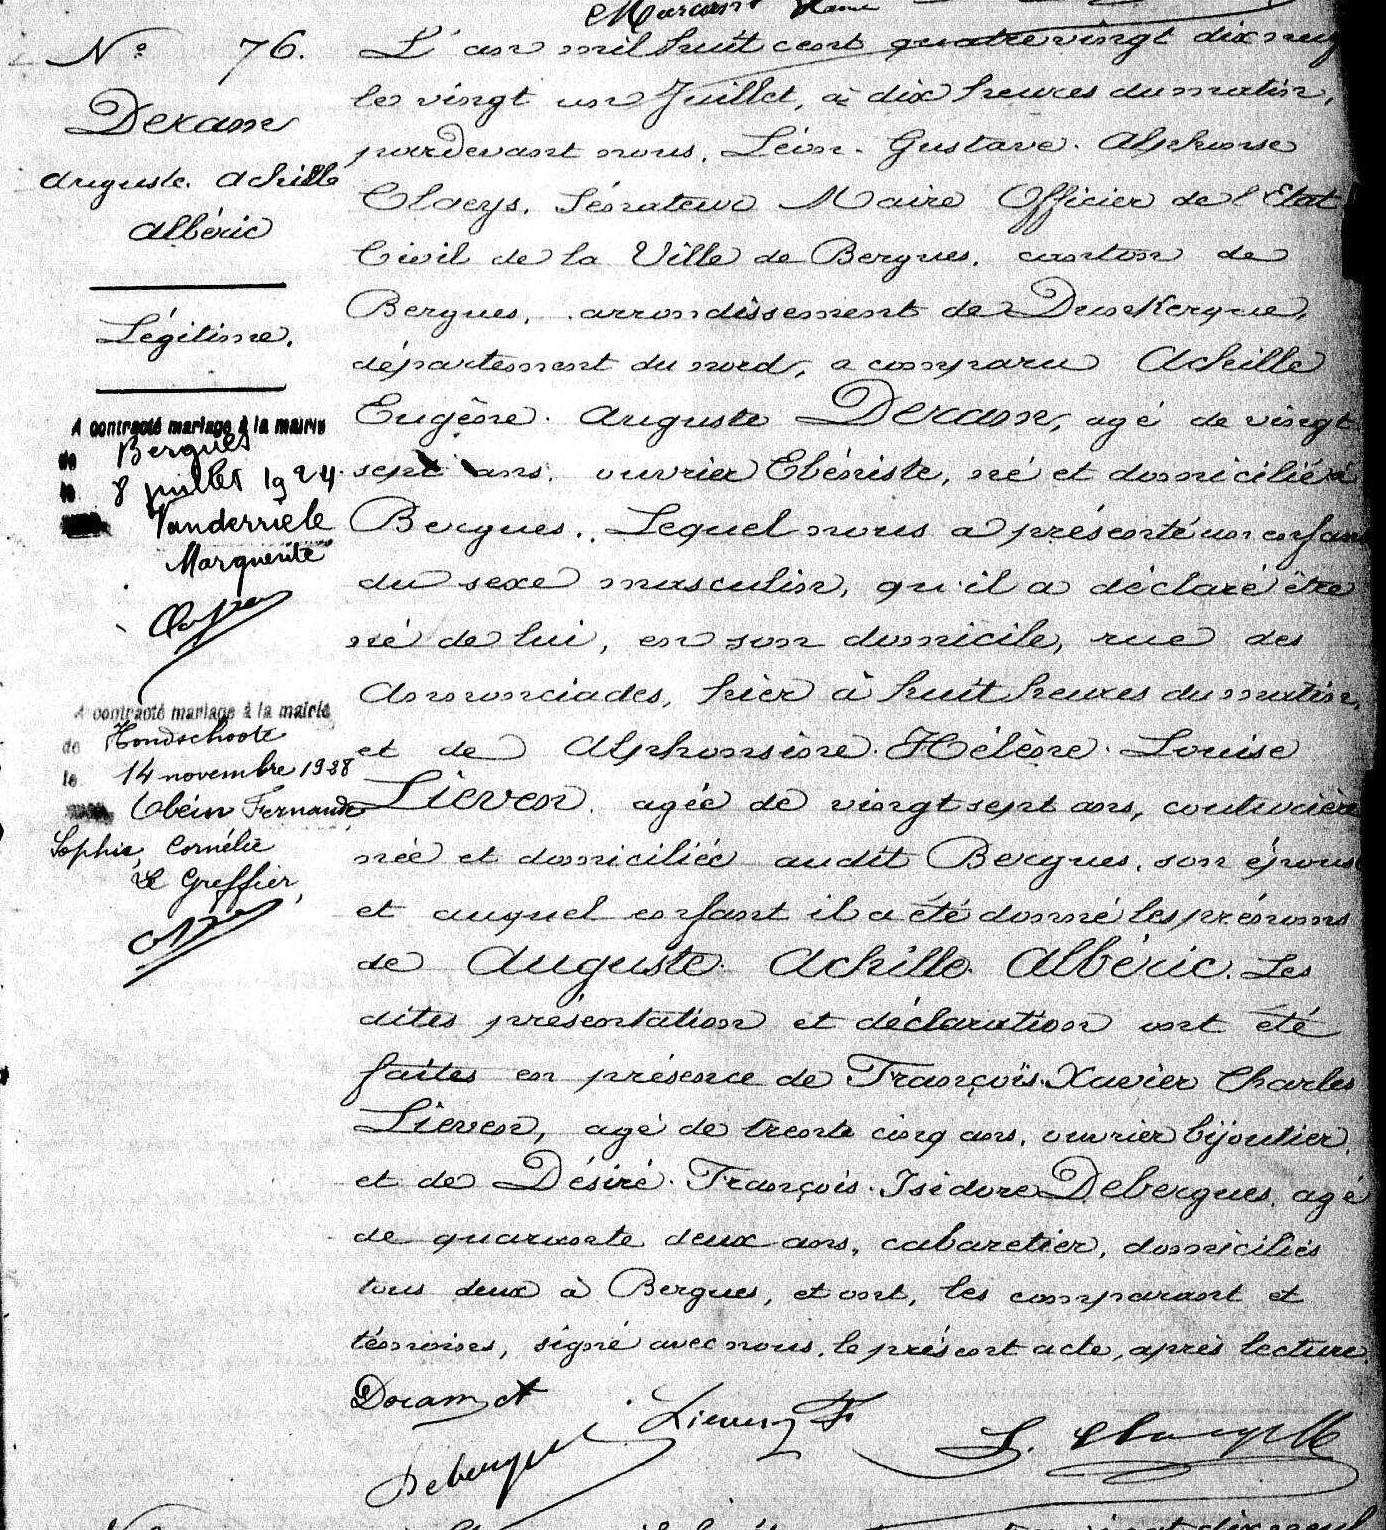 Nº 76.
Deram
Auguste. Achille
Albéric
Légitime.
A contracté mariage à la mairie
de Bergues
le 8 juillet 1924
Vanderriele
Marguerite
A contracté mariage à la mairie
de Hondschoote
le 14 novembre 1938
Obein Fernande
Sophie Cornélie
Le Greffier,
L'an mil huit cent quatre vingt dix neuf
le vingt un Juillet, à dix heures du matin,
pardevant nous, Léon. Gustave. Alphonse
Claeys, Sénateur Maire Officier de l'Etat
Civil de la Ville de Bergues, canton de
Bergues, arrondissement de Dunkerque,
département du nord, a comparu Achille
Eugène. Auguste Deram, agé de vingt
sept ans, ouvrier Ebéniste, né et domicilié à
Bergues., Lequel nous a présenté un enfant
du sexe masculin, qu'il a déclaré être
né de lui, en son domicile, rue des
Annonciades, hier à huit heures du matin,
et de Alphonsine. Hélène. Louise
Lieven. agée de vingt sept ans, couturière
née et domiciliée audit Bergues, son épouse
et auquel enfant il a été donné les prénoms
de Auguste. Achille. Albéric. Les
dites présentation et déclaration ont été
faites en présence de François. Xavier Charles
Lieven, agé de trente cinq ans, ouvrier bijoutier,
et de Désiré. François. Isidore Debergues, agé
de quarante deux ans, cabaretier, domiciliés
tous deux à Bergues, et ont, les comparant et
témoins, signé avec nous, le présent acte, après lecture.
Deram A
Lieven F
Debergues
L. Claeys